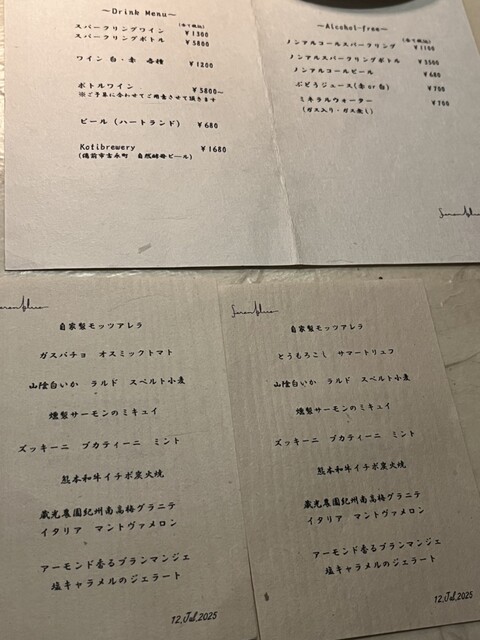 ～Drink Menu～
(全て税込)
スパークリングワイン ￥1300
スパークリングボトル ￥5800
ワイン 白・赤 各種 ￥1200
ボトルワイン ￥5800～
※ご予算に合わせてご用意させて頂きます
ビール (ハートランド) ￥680
Kotibrewery ￥1680
(備前市吉永町 自然酵母ビール)
～Alcohol-free～
(全て税込)
ノンアルコールスパークリング ￥1100
ノンアルスパークリングボトル ￥5500
ノンアルコールビール ￥680
ぶどうジュース(赤 or 白) ￥700
ミネラルウォーター ￥700
(ガス入り・ガス無し)
自家製モッツアレラ
ガスパチョ オスミックトマト
山陰白いか ラルド スペルト小麦
燻製サーモンのミキュイ
ズッキーニ ブカティーニ ミント
熊本和牛イチボ炭火焼
蔵光農園紀州南高梅グラニテ
イタリア マントヴァメロン
アーモンド香るブランマンジェ
塩キャラメルのジェラート
12.Jul.2025
自家製モッツアレラ
とうもろこし サマートリュフ
山陰白いか ラルド スペルト小麦
燻製サーモンのミキュイ
ズッキーニ ブカティーニ ミント
熊本和牛イチボ炭火焼
蔵光農園紀州南高梅グラニテ
イタリア マントヴァメロン
アーモンド香るブランマンジェ
塩キャラメルのジェラート
12.Jul.2025